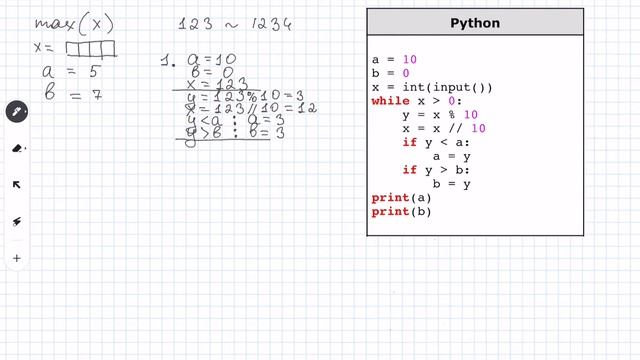 max(x)
x=
a = 5
b = 7
123 ~ 1234
1. a=10
b=0
x=123
y=123%10=3
x=123//10=12
y<a : a=3
y>b : b=3
y
Python
a = 10
b = 0
x = int(input())
while x > 0:
y = x % 10
x = x // 10
if y < a:
a = y
if y > b:
b = y
print(a)
print(b)